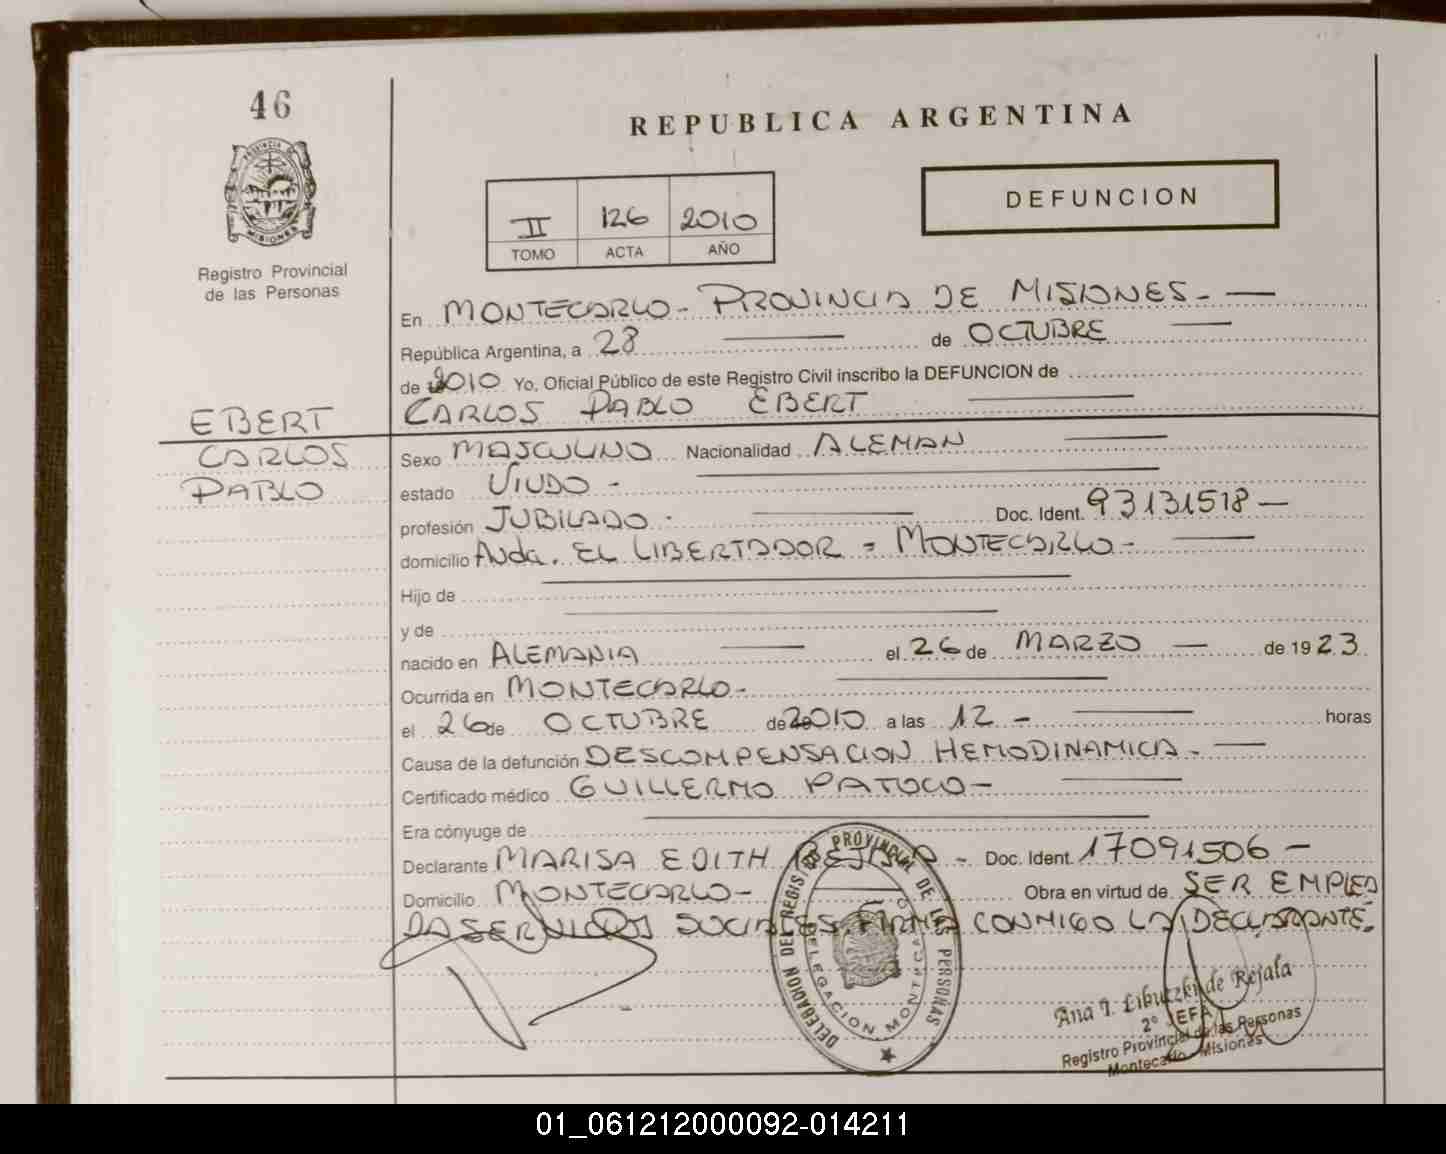 46
PROVINCIA DE
MISIONES
Registro Provincial
de las Personas
REPUBLICA ARGENTINA
II 126 2010
TOMO ACTA AÑO
DEFUNCION
En MONTECARLO - PROVINCIA DE MISIONES -
República Argentina, a 28 de OCTUBRE
de 2010 Yo, Oficial Público de este Registro Civil inscribo la DEFUNCION de
CARLOS PABLO EBERT
EBERT
CARLOS
PABLO
Sexo MASCULINO Nacionalidad ALEMAN
estado VIUDO -
profesión JUBILADO - Doc. Ident. 93131518 -
domicilio Avda. EL LIBERTADOR = MONTECARLO -
Hijo de
y de
nacido en ALEMANIA el 26 de MARZO - de 1923
Ocurrida en MONTECARLO -
el 26 de OCTUBRE de 2010 a las 12 - horas
Causa de la defunción DESCOMPENSACION HEMODINAMICA -
Certificado médico GUILLERMO PATOCO -
Era cónyuge de
Declarante MARISA EDITH - Doc. Ident. 17091506 -
Domicilio MONTECARLO - Obra en virtud de SER EMPLEA
DA SERVICIOS SOCIALES. FIRMA CONMIGO LA DECLARANTE.
DELEGACION DEL REGISTRO PROVINCIAL DE LAS PERSONAS
DELEGACION MONTECARLO
Ana I. Libutzki de Rejala
2° JEFA
Registro Provincial de las Personas
Montecarlo Misiones
01_061212000092-014211